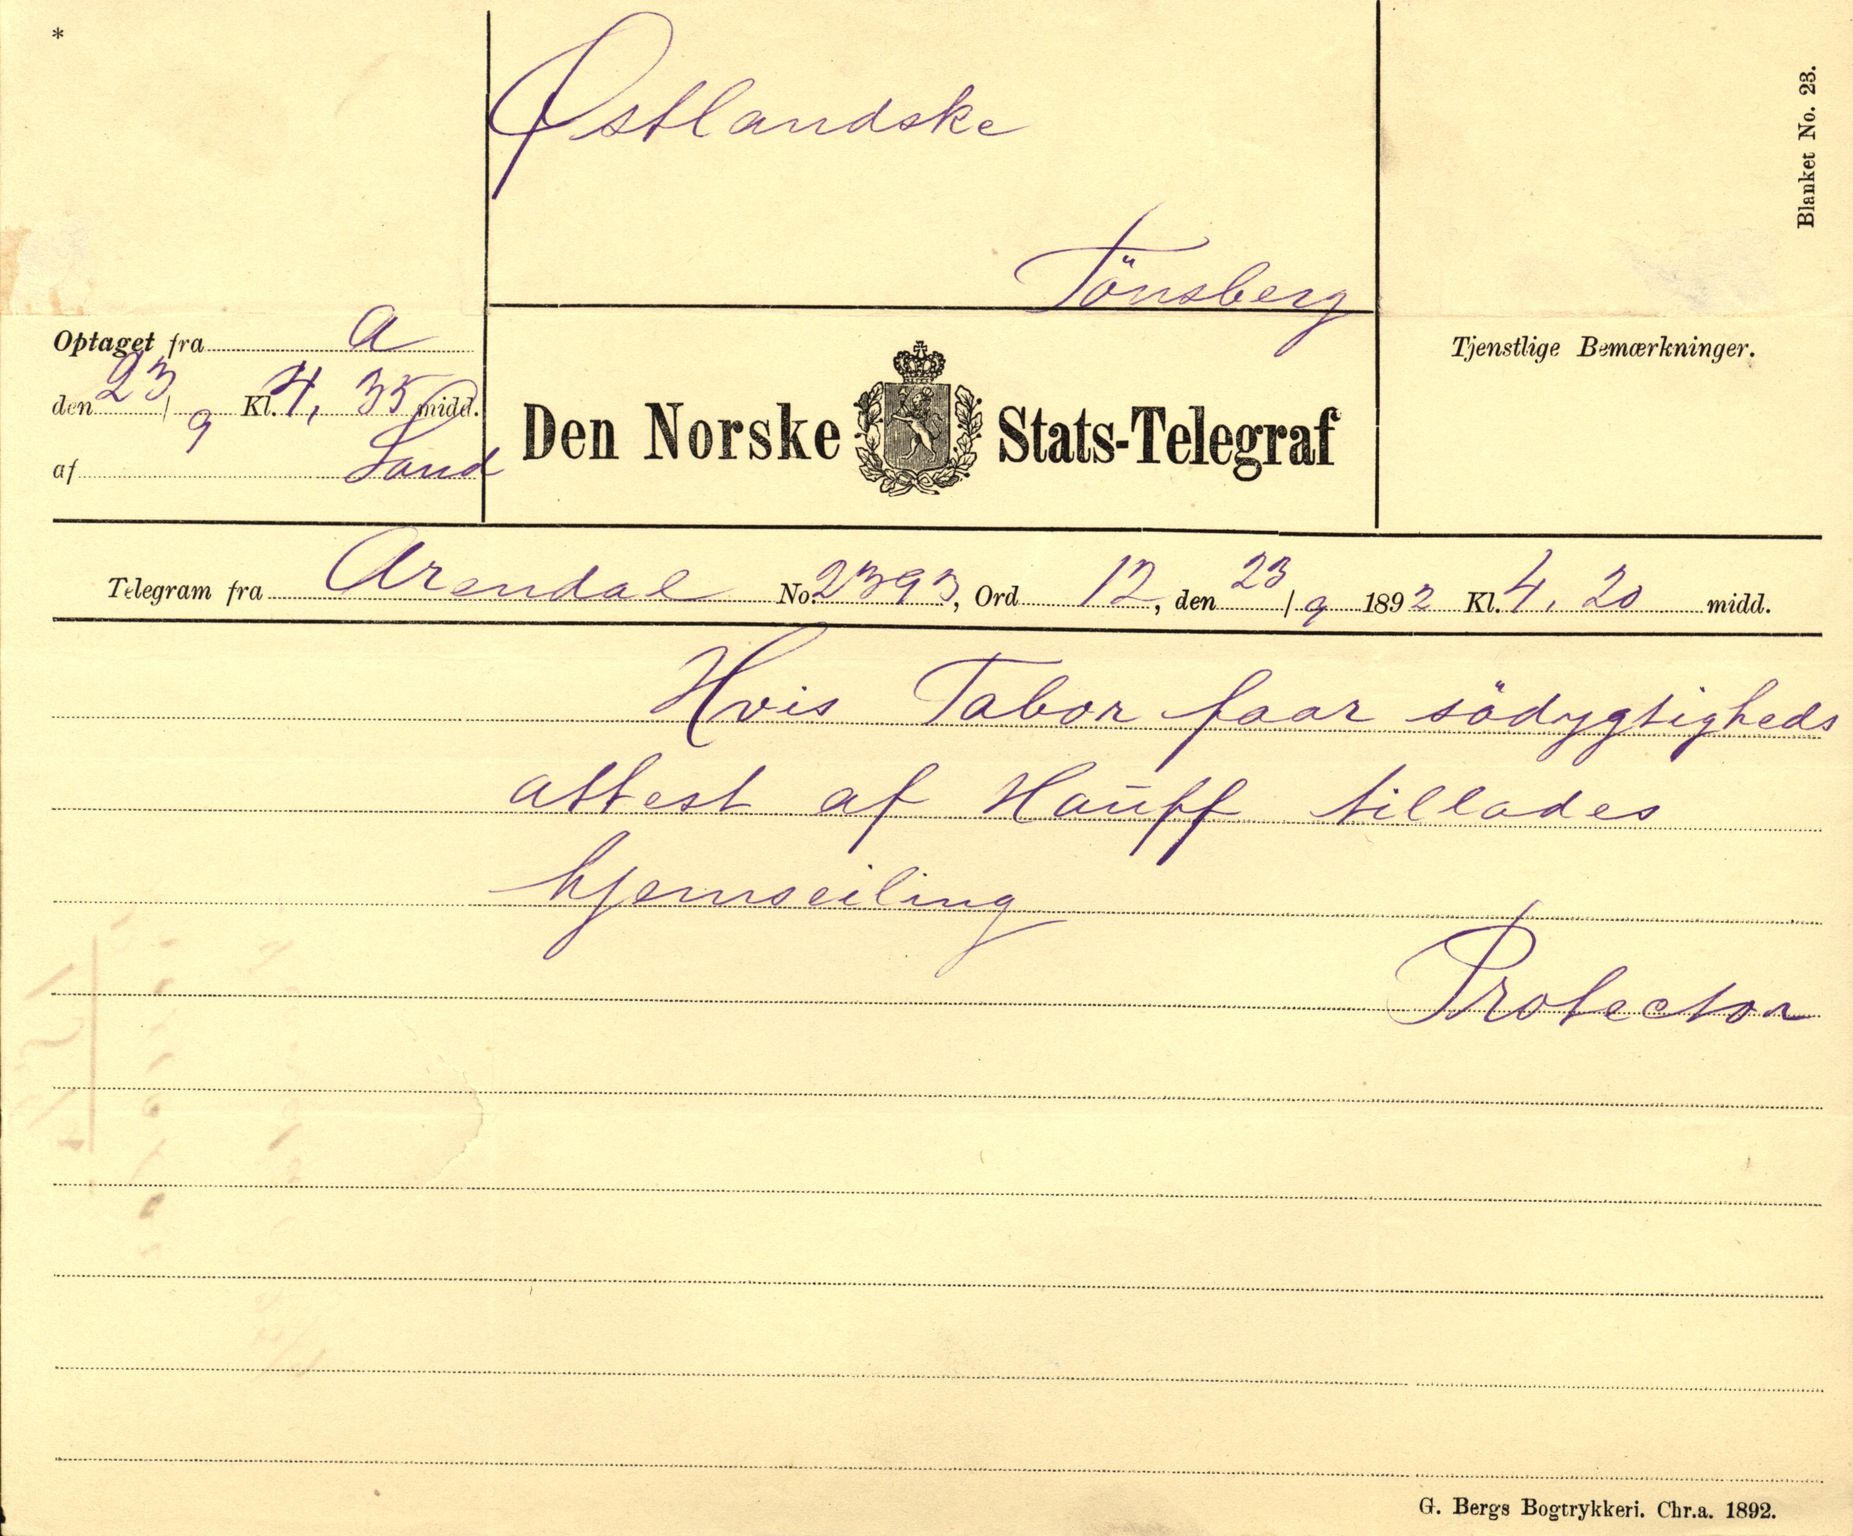 *
Østlandske
Tönsberg
Blanket No. 23.
Optaget fra A
den 23/9 Kl. 4,35 midd.
af Sand
Den Norske Stats-Telegraf
Tjenstlige Bemærkninger.
Telegram fra Arendal No. 2393, Ord 12, den 23/9 1892 Kl. 4,20 midd.
Hvis Tabor faar södygtigheds
attest af Hauff tillades
hjemseiling
Protector
G. Bergs Bogtrykkeri. Chr.a. 1892.